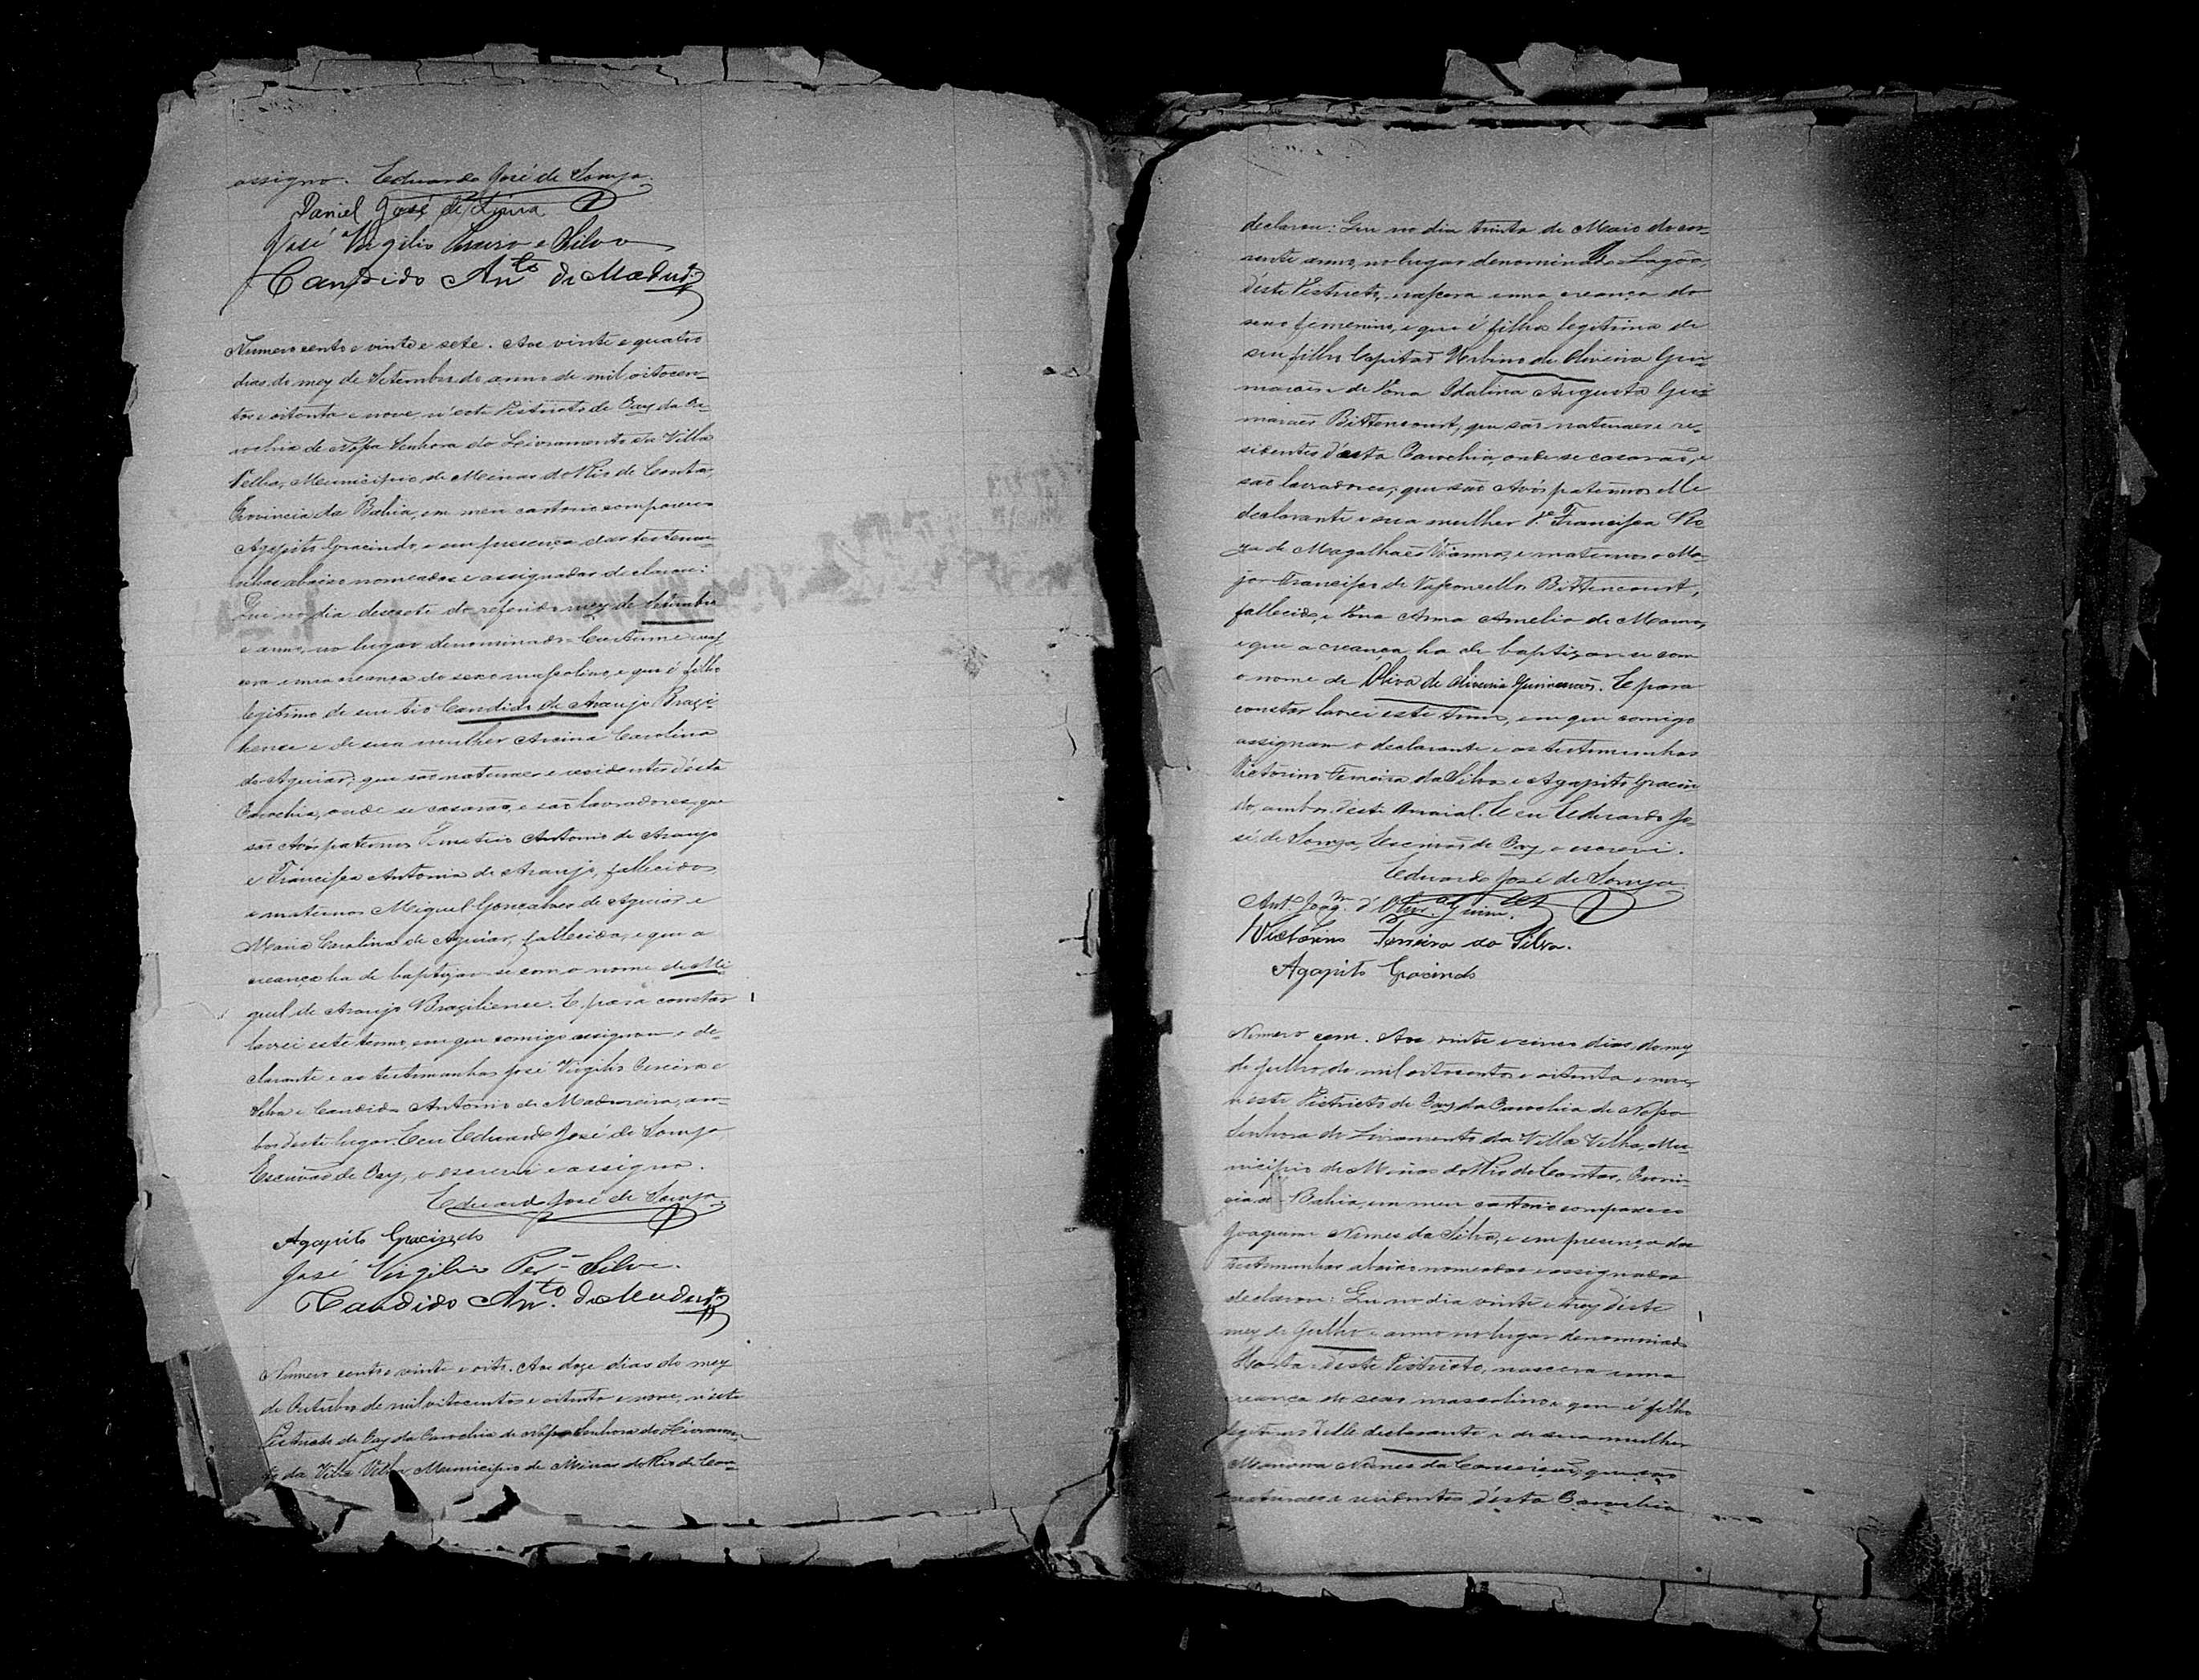 assigno. Eduardo José de Souza.
Daniel José de Lima
José Virgilio Pereira e Silva
Candido Anto de Madura
Numero cento e vinte e sete. Aos vinte e quatro
dias do mez de Setembro do anno de mil oitocen-
tos e oitenta e nove, n'este Districto de Paz da Pa-
rochia de Nossa Senhora do Livramento da Villa
Velha, Municipio de Minas do Rio de Contas,
Provincia da Bahia, em meu cartorio compareceo
Agapito Gracindo, e em presença das testemu-
nhas abaixo nomeadas e assignadas declarou:
Que no dia desesete do referido mez de Setembro
e anno, no lugar denominado Curtume nas-
cera uma creança do sexo masculino, e que é filho
legitimo de seu tio Candido de Araujo Brazi-
liense e de sua mulher Arcina Carolina
de Aguiar; que são naturaes e residentes d'esta
Parochia, onde se casarão, e são lavradores, que
são Avós paternos Antonio de Araujo
e Francisca Antonia de Araujo, fallecidos,
e maternos Miguel Gonçalves de Aguiar e
Maria Carolina de Aguiar, fallecida, e que a
creança ha de baptizar-se com o nome de Mi-
guel de Araujo Braziliense. E para constar
lavrei este termo, em que comigo assignam o de-
clarante e as testemunhas José Virgilio Pereira e
Silva e Candido Antonio de Madureira, am-
bos deste lugar. E eu Eduardo José de Souza,
Escrivão de Paz, o escrevi e assigno.
Eduardo José de Souza
Agapito Gracindo
José Virgilio Per.ª Silva.
Candido Anto. de Madura
Numero cento e vinte e oito. Aos doze dias do mez
de Outubro de mil oitocentos e oitenta e nove, n'este
Districto de Paz da Parochia de Nossa Senhora do Livramen-
to da Villa Velha, Municipio de Minas do Rio de Con-
declarou: Que no dia trinta de Maio do cor-
rente anno, no lugar denominado Lagôa,
d'este Districto, nascera uma creança do
sexo femenino, e que é filha legitima de
seu filho Capitão Urbino de Oliveira Gui-
marães e de Dona Idalina Augusta Gui-
marães Bittencourt, que são naturaes e re-
sidentes d'esta Parochia, onde se casarão, e
são lavradores; que são Avós paternos elle
declarante e sua mulher D. Francisca Ro-
za de Magalhães Vianna, e maternos o Ma-
jor Francisco de Vasconcellos Bittencourt,
fallecido, e Dona Anna Amelia de Moura,
e que a creança ha de baptizar-se com
o nome de Oliva de Oliveira Guimarães. E para
constar lavrei este termo, em que comigo
assignam o declarante e as testemunhas
Victorino Ferreira da Silva e Agapito Gracin-
do, ambos d'este Arraial. E eu Eduardo Jo-
sé de Souza, Escrivão de Paz o escrevi.
Eduardo José de Souza
Ant. Joaqm. d'Olivra. Guim.
Victorino Ferreira da Silva.
Agapito Gracindo
Numero cem. Aos vinte e cinco dias do mez
de Julho de mil oitocentos e oitenta e nove,
n'este Districto de Paz da Parochia de Nossa
Senhora do Livramento da Villa Velha, Mu-
nicipio de Minas do Rio de Contas, Provin-
cia da Bahia, em meu cartorio compareceo
Joaquim Nunes da Silva, e em presença das
testemunhas abaixo nomeadas e assignadas
declarou: Que no dia vinte e trez d'este
mez de Julho e anno no lugar denominado
Horta d'este Districto, nascera uma
creança do sexo masculino e que é filho
legitimo d'elle declarante e de sua mulher
Marianna Nunes da Conceição, que são
naturaes e residentes d'esta Parochia